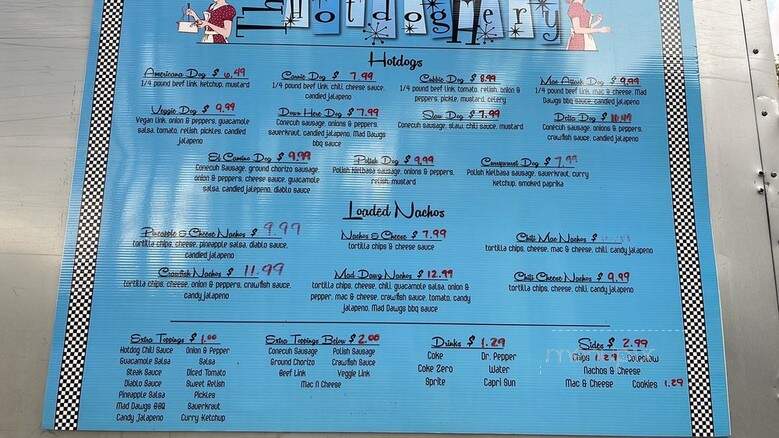 The HotdogHery
Hotdogs
Americana Dog $ 6.49
1/4 pound beef link, ketchup, mustard
Connie Dog $ 7.99
1/4 pound beef link, chili cheese sauce,
candied jalapeno
Cobbie Dog $ 8.99
1/4 pound beef link, tomato, relish, onion &
peppers, pickle, mustard, celery
Mac Attack Dog $ 9.99
1/4 pound beef link, mac & cheese, Mad
Dawgs bbq sauce, candied jalapeno
Veggie Dog $ 9.99
Vegan link, onion & peppers, guacamole
salsa, tomato, relish, pickles, candied
jalapeno
Down Here Dog $ 7.99
Conecuh sausage, onions & peppers,
sauerkraut, candied jalapeno, Mad Dawgs
bbq sauce
Slaw Dog $ 7.99
Conecuh sausage, slaw, chili sauce, mustard
Delta Dog $ 10.49
Conecuh sausage, onions & peppers,
crawfish sauce, candied jalapeno
El Camino Dog $ 9.99
Conecuh Sausage, ground chorizo sausage,
onion & peppers, cheese sauce, guacamole
salsa, candied jalapeno, diablo sauce
Polish Dog $ 9.99
Polish kielbasa sausage, onions & peppers,
relish, mustard
Currywurst Dog $ 7.99
Polish kielbasa sausage, sauerkraut, curry
ketchup, smoked paprika
Loaded Nachos
Pineapple & Cheese Nachos $ 9.99
tortilla chips, cheese, pineapple salsa, diablo sauce,
candied jalapeno
Nachos & Cheese $ 7.99
tortilla chips & cheese sauce
Chili Mac Nachos $
tortilla chips, cheese, mac & cheese, chili, candy jalapeno
Crawfish Nachos $ 11.99
tortilla chips, cheese, onion & peppers, crawfish sauce,
candy jalapeno
Mad Dawg Nachos $ 12.99
tortilla chips, cheese, chili, guacamole salsa, onion &
pepper, mac & cheese, crawfish sauce, tomato, candy
jalapeno, Mad Dawgs bbq sauce
Chili Cheese Nachos $ 9.99
tortilla chips, cheese, chili, candy jalapeno
Extra Toppings $ 1.00
Hotdog Chili Sauce Onion & Pepper
Guacamole Salsa Salsa
Steak Sauce Diced Tomato
Diablo Sauce Sweet Relish
Pineapple Salsa Pickles
Mad Dawgs BBQ Sauerkraut
Candy Jalapeno Curry Ketchup
Extra Toppings Below $ 2.00
Conecuh Sausage Polish Sausage
Ground Chorizo Crawfish Sauce
Beef Link Veggie Link
Mac N Cheese
Drinks $ 1.29
Coke Dr. Pepper
Coke Zero Water
Sprite Capri Sun
Sides $ 2.99
Chips 1.29 Coleslaw
Nachos & Cheese
Mac & Cheese Cookies 1.29